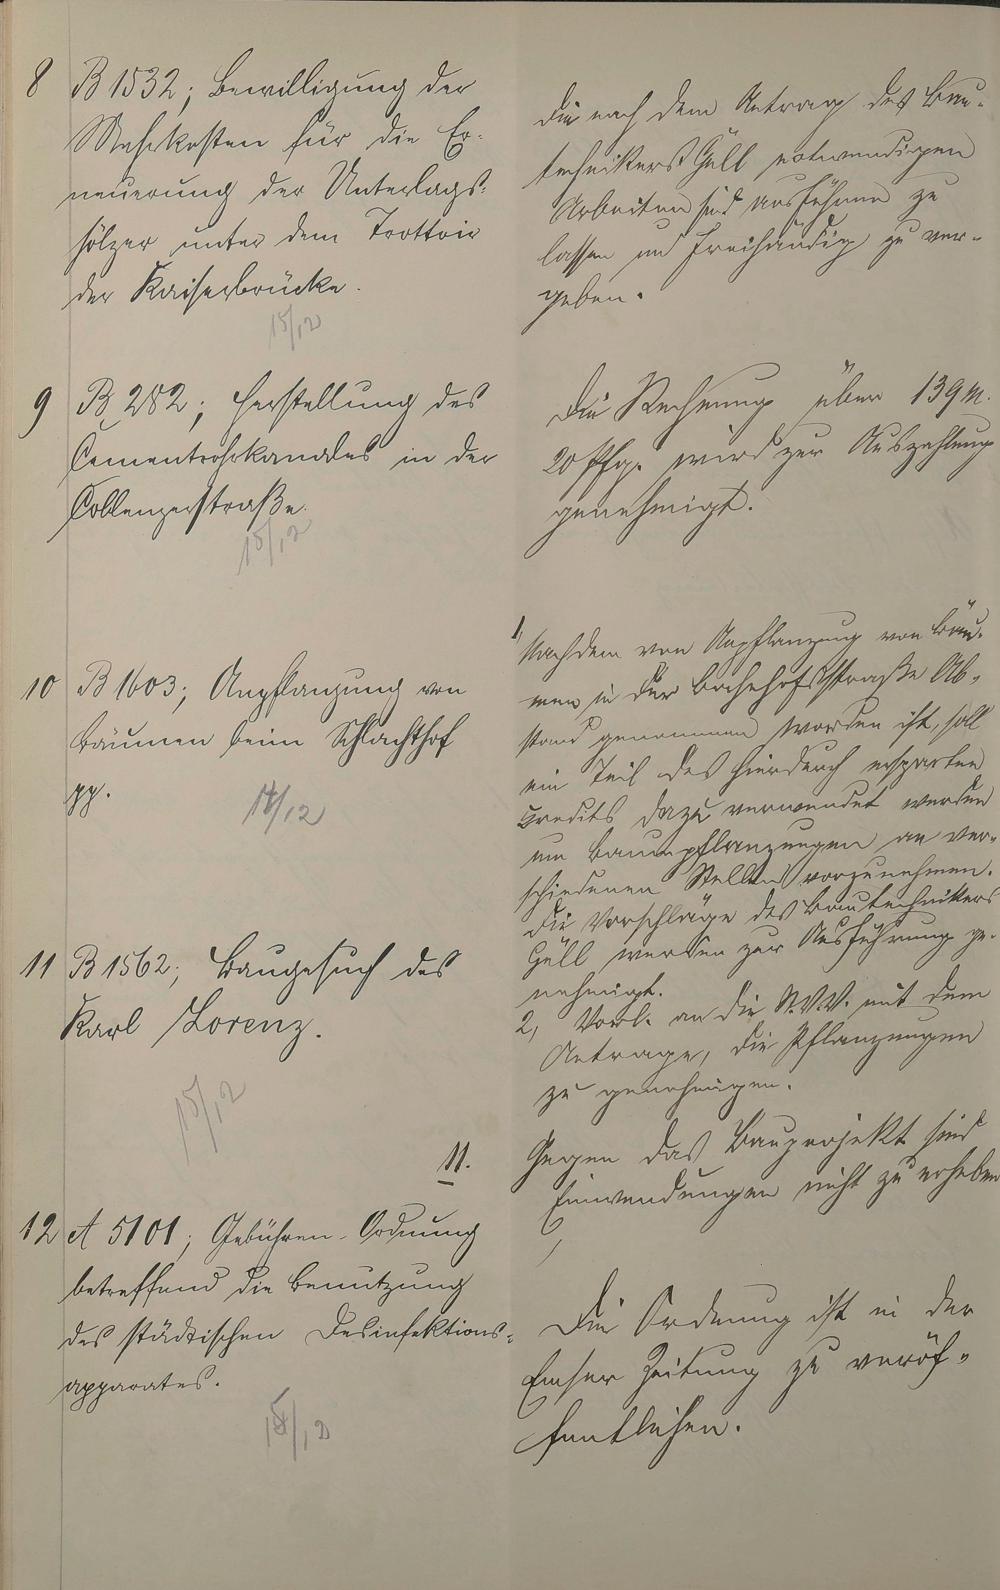 8 B 1532; Bewilligung der
Mehrkosten für die Er-
neuerung der Unterlags-
hölzer unter dem Trottoir
der Kaiserbrücke.
15/12
Die nach dem Antrag des Bau-
technikers Güll notwendigen
Arbeiten sind ausführen zu
lassen und freihändig zu ver-
geben.
9 B 282; Herstellung des
Cementrohrkanales in der
Coblenzerstraße.
15/12
Die Rechnung über 139 M.
20 Pfg. wird zur Auszahlung
genehmigt.
10 B 1603; Anpflanzung von
Bäumen beim Schlachthof
pp.
14/12
1, Nachdem von Anpflanzung von Bäu-
men in der Bahnhofsstraße Ab-
stand genommen worden ist, soll
ein Teil des hierdurch ersparten
Credits dazu verwendet werden
um Baumpflanzungen an ver-
schiedenen Stellen vorzunehmen.
Die Vorschläge des Bautechnikers
Güll werden zur Ausführung ge-
nehmigt.
2, Vorl. an die St.V.V. mit dem
Antrage, die Pflanzungen
zu genehmigen.
11 B 1562; Baugesuch des
Karl Lorenz.
15/12
11.
Gegen das Bauprojekt sind
Einwendungen nicht zu erheben
12 A 5101; Gebühren-Ordnung
betreffend die Benutzung
des städtischen Desinfektions-
apparates.
15/12
Die Ordnung ist in der
Emser Zeitung zu veröf-
fentlichen.